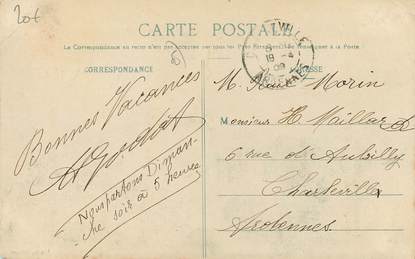 20f
CARTE POSTALE
La Correspondance au recto n'est pas acceptée par tous les Pays Étrangers. Se renseigner à la Poste
CORRESPONDANCE
Bonnes Vacances
Nous partons Diman-
che soir à 5 heures
VILLE
19 -4
09
ARDENNES
M. Morin
Monsieur H. Maillard
6 rue d'Aubilly
Charleville
Ardennes